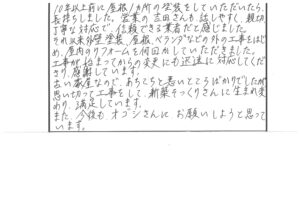 10年以上前に屋根1カ所の塗装をしていただいたら、
長持ちしました。営業の吉田さんも話しやすく、親切
丁寧な対応で、信頼できる業者だと感じました。
それ以来外壁塗装、屋根、ベランダなどの外の工事をはじ
め、屋内のリフォームを何回かしていただきました。
工事が始まってからの変更にも迅速に対応してくだ
さり、感謝しています。
古い家屋なので、あちこちと悪いところばかりでしたが
思い切って工事をして、新築そっくりさんに生まれ変
わり、満足しています。
また、今後もオゴシさんにお願いしようと思って
います。